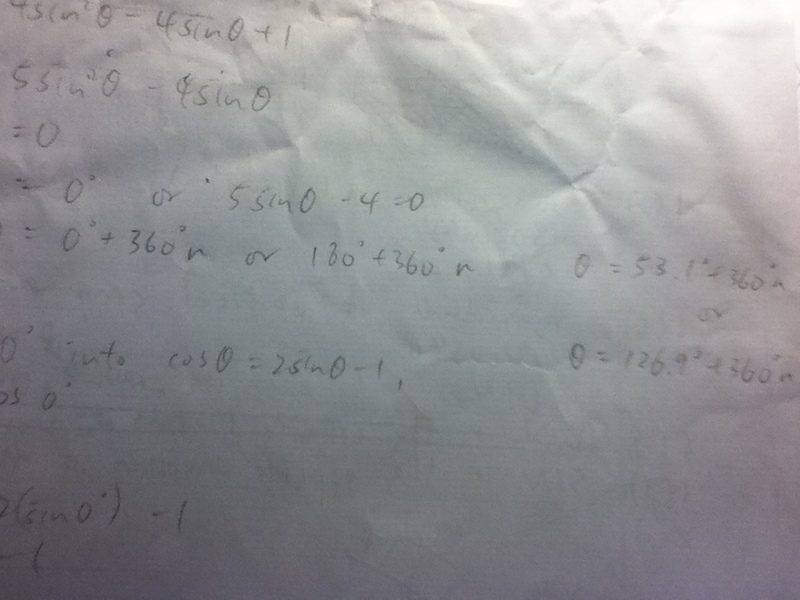 4sin²θ - 4sinθ + 1
5sin²θ - 4sinθ
= 0
= 0° or 5sinθ - 4 = 0
= 0° + 360°n or 180° + 360°n
θ = 53.1° + 360°n
or
θ = 126.9° + 360°n
0° into cosθ = 2sinθ - 1,
os 0°
2(sin0°) - 1
- 1